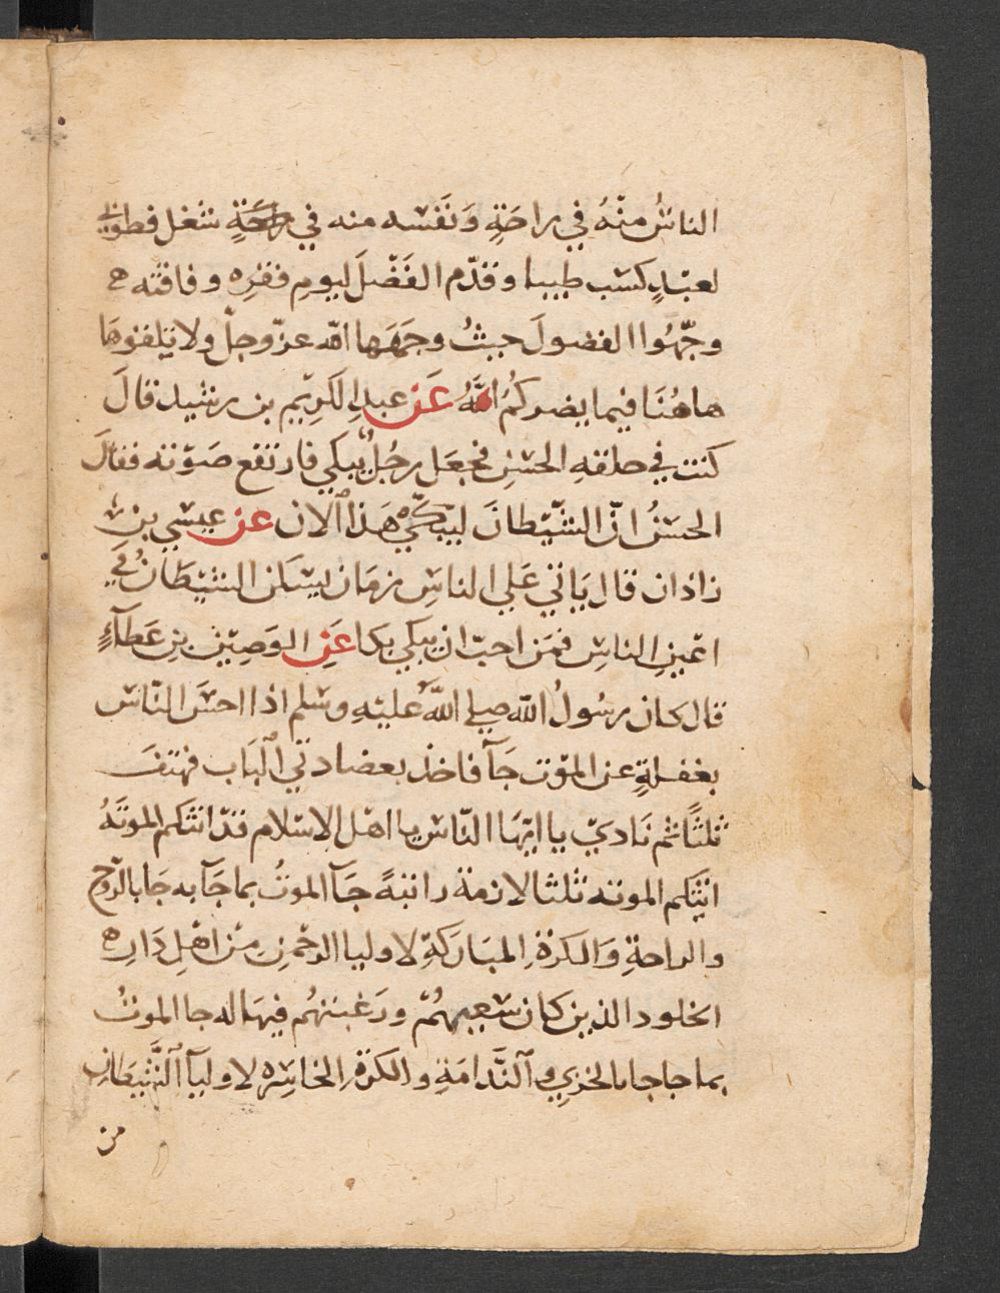 الناسُ منْهُ في راحَةٍ وَنَفْسه منه في شغل فطوبي
لعبْدٍ كسْب طيبا وقدّم الفَضْلَ ليومِ فقرِه وفاقته ح
وجِّهُوا الفضولَ حيثُ وجهَهَا الله عز وجلّ ولا تلقوهَا
هاهُنَا فيما يضركُمُ اللَّهُ عَن عبدِ الكَرِيْمِ بن رشيد قالَ
كنت في حلقهِ الحسْنِ فجعَل رجُلٌ يبكي فارتفع صَوْته فقالَ
الحسْنُ انّ الشّيْطانَ ليبْكي هَذا الان عن عيسْي بن
زاذان قال يَاتي عَلي الناسِ زمَان يسْكن الشيْطَانُ في
اعْينِ الناسِ فمَن احبّ ان يبكي بكا عَنِ الوَصِيْن بنِ عَطآءٍ
قال كان رسُولُ الله صلي اللَّهُ عليْهِ وسْلم اذا احسْ النّاسْ
بغفلةٍ عن الموْت جَآ فاخذ بعضادتي الْبَاب فهتفَ
ثلثًا ثم نَاديْ يا ايّهَا النّاسْ يا اهْل الاسْلام قدْ اتتكم الموتَهُ
اتتْكم الموته ثلثا لازمة راتبةً جَآ الموتُ بما جَآ به جَا بالرّوح
والراحةِ وَالكرةِ المبَاركةِ لاوليا الرحْمنِ منْ اهْلِ دَار
الخلود الذين كان سْعيهُمْ ورَغبتهُم فيهَا له جا الموتُ
بما جا جا بالخزيِ وٱلنَّدامَةِ والكرّةِ الخاسْره لاوليآ ٱلشَّيطَانِ
من